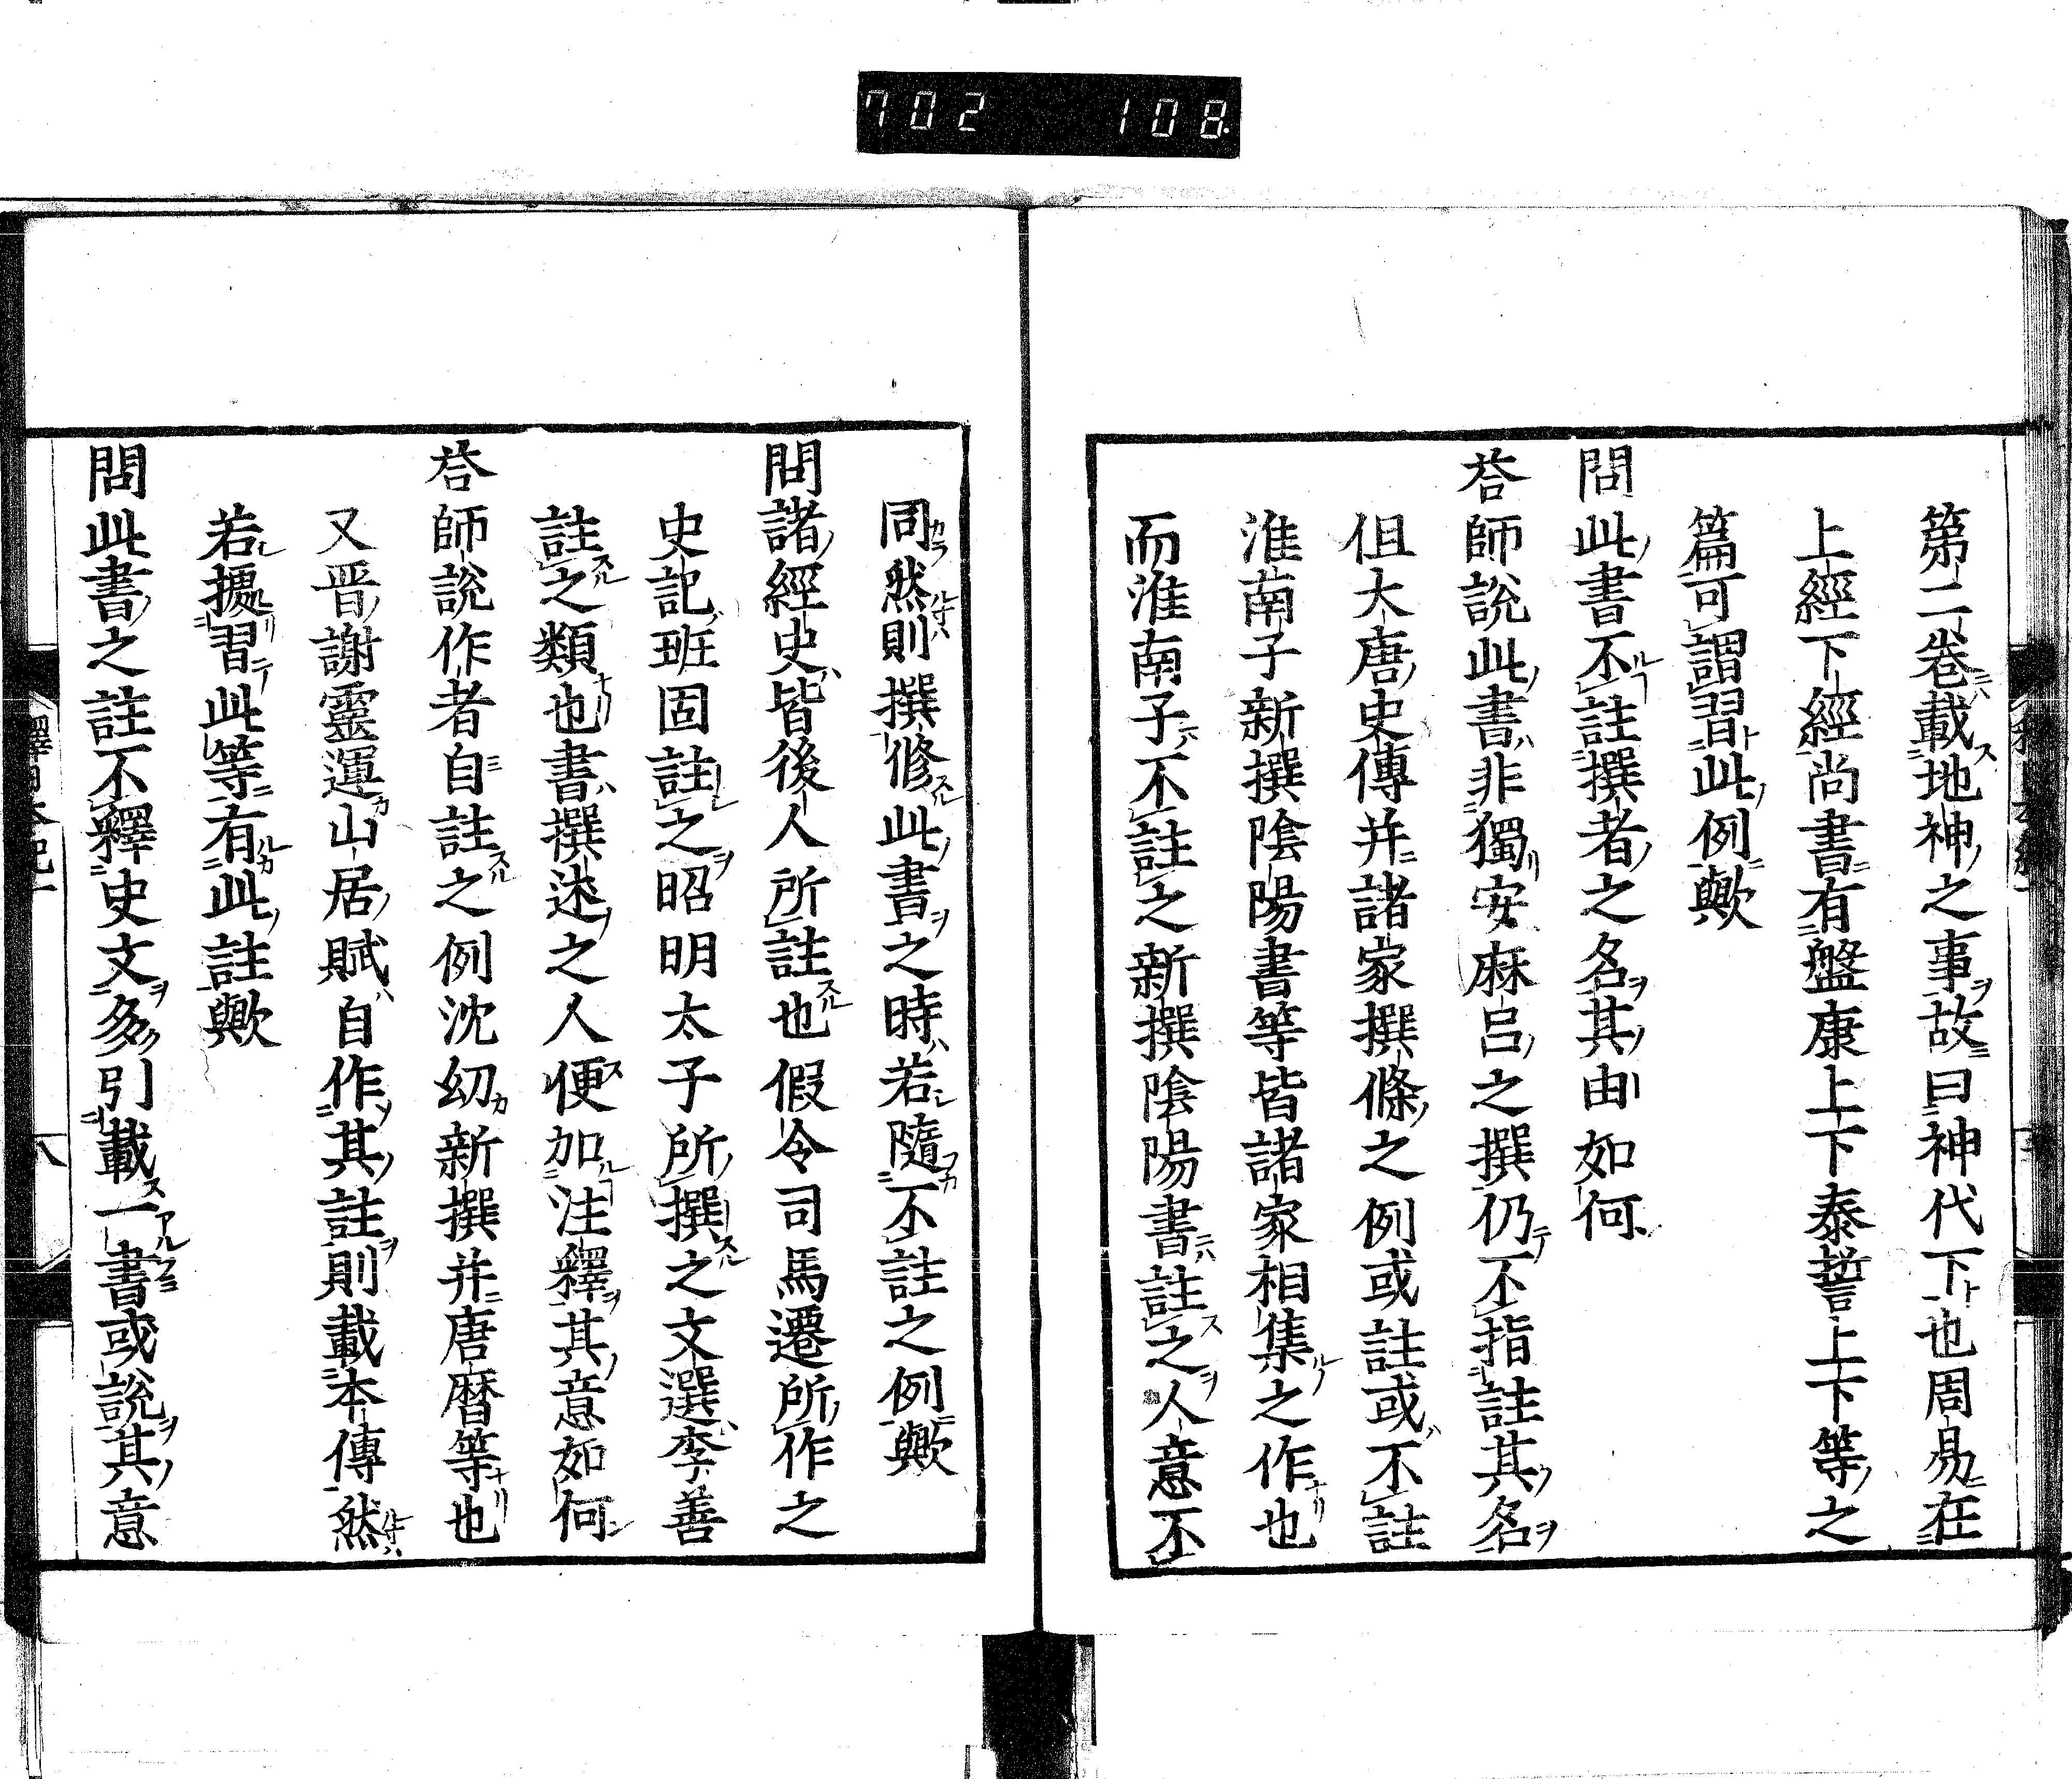 702 108
第二卷載地神之事故曰神代下也周易在
上經下經尚書有盤康上下泰誓上下等之
篇可謂習此例歟
問此書不註撰者之名其由如何
荅師說此書非獨安麻呂之撰仍不指註其名
但大唐史傳并諸家撰條之例或註或不註
淮南子新撰陰陽書等皆諸家相集之作也
而淮南子不註之新撰陰陽書註之人意不
同然則撰修此書之時若隨不註之例歟
問諸經史皆後人所註也假令司馬遷所作之
史記班固註之昭明太子所撰之文選李善
註之類也書撰述之人便加注釋其意如何
荅師說作者自註之例沈㓜新撰并唐暦等也
又晋謝靈運山居賦自作其註則載本傳然
若據習此等有此註歟
問此書之註不釋史文多引載一書或說其意
釋日本紀一
八